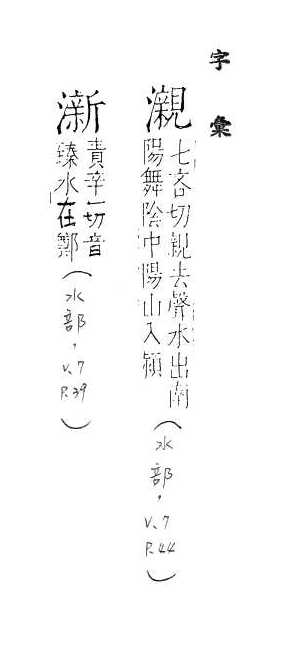 字彙
瀙
七吝切親去聲水出南
陽舞陰中陽山入潁
(水部,V.7
P.44)
澵
責辛切音
臻水在鄭
(水部,V.7
P.39)